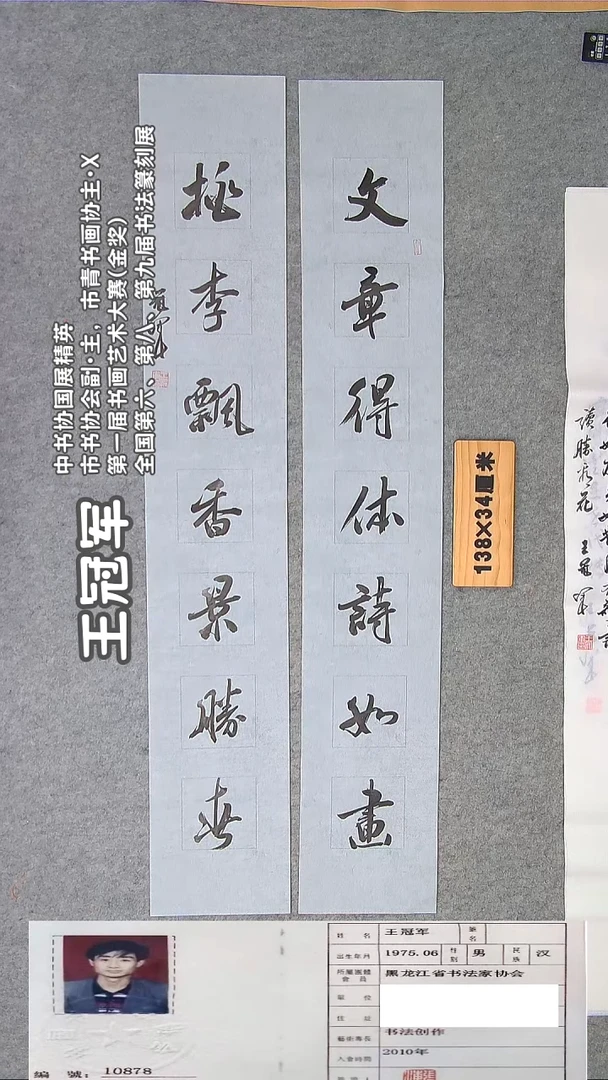 文章得体詩如畫
桃李飄香景勝春
中书协国展精英
市书协会副·主，市青书画协主·X
第一届书画艺术大赛(金奖)
全国第六、第八、第九届书法篆刻展
王冠军
138×34厘米
讀勝於花 王冠軍
姓名 王冠军 筆名
出生年月 1975.06 性别 男 民族 汉
所屬團體會員 黑龙江省书法家协会
單位
住址
藝術專長 书法创作
入會時間 2010年
編號：10878